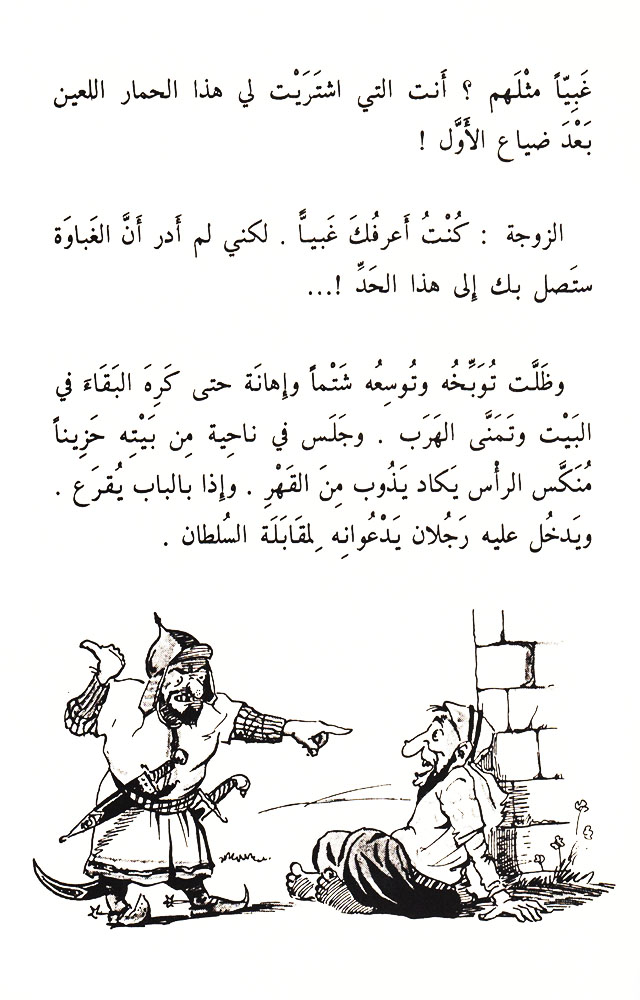 غَبِيّاً مثْلَهم ؟ أَنت التي اشتَرَيْت لي هذا الحمار اللعين
بَعْدَ ضياع الأَوَّل !
الزوجة : كُنْتُ أَعرفُكَ غَبياًّ . لكني لم أَدر أَنَّ الغَباوَة
ستَصل بك إِلى هذا الحَدِّ !...
وظَلَّت تُوَبِّخُه وتُوسِعُه شَتْماً وإِهانَة حتى كَرِهَ البَقَاءَ في
البَيْت وتَمَنَّى الهَرَب . وجَلَس في ناحِية مِن بَيْتِه حَزِيناً
مُنَكَّس الرأْس يَكاد يَذُوب مِنَ القَهْرِ . وإِذا بالباب يُقرَع .
ويَدخُل عليه رَجُلان يَدْعُوانِه لِمقَابَلَة السُلطان .